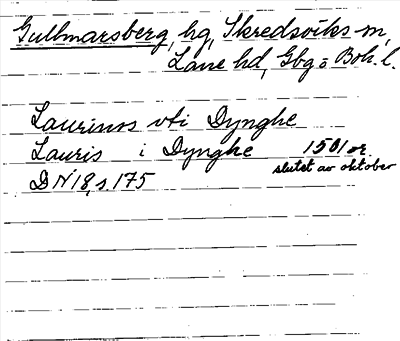 Gullmarsberg, hg, Skredsviks sn,
Lane hd, Gbg o Boh. l.
Laurinos vti Dynghe
Lauris i Dynghe 1501 or
slutet av oktober
DN 18, s. 175